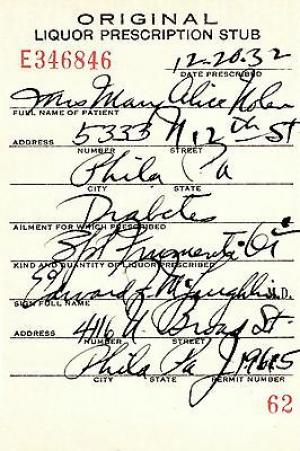 ORIGINAL
LIQUOR PRESCRIPTION STUB
E346846
12-20-32
DATE PRESCRIBED
Mrs Mary Alice Nolan
FULL NAME OF PATIENT
ADDRESS 5333 N 12th St
NUMBER STREET
Phila Pa
CITY STATE
Diabetes
AILMENT FOR WHICH PRESCRIBED
Spt Frumenti
KIND AND QUANTITY OF LIQUOR PRESCRIBED
Edward J. McLaughlin M.D.
SIGN FULL NAME
ADDRESS 4116 N. Broad St.
NUMBER STREET
Phila Pa J19615
CITY STATE PERMIT NUMBER
62